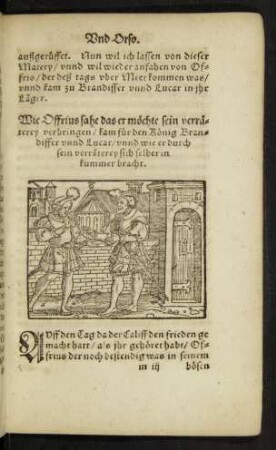 Vnd Orso.
außgerüffet. Nun wil ich lassen von dieser
Matery / vnnd wil wieder anfahen von Of-
frio / der deß tags vber Meer kommen was /
vnnd kam zu Brandiffer vnnd Lucar in jhr
Läger.
Wie Offrius sahe das er möchte sein verrä-
terey verbringen / kam für den König Bran-
differ vnnd Lucar / vnnd wie er durch
sein verräterey sich selber in
kummer bracht.
AVff den Tag da der Califf den frieden ge
macht hatt / als jhr gehöret habt / Of-
frius der noch bestendig was in seinem
m iij bösen